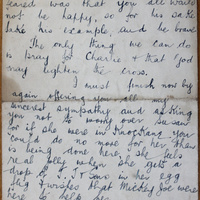 feared was that you all would
not be happy, so for his sake
take his example, and be brave
The only thing we can do
is pray for Charlie & that God
may lighten the cross.
I must finish now by
again offering you all my
sincerest sympathy and asking
you not to worry over Susan
for if she were in you
could do no more for her than
is being done here. She gets
real jolly when she gets a
drop of in her egg
& wishes that Mickey Joe were
here to help her